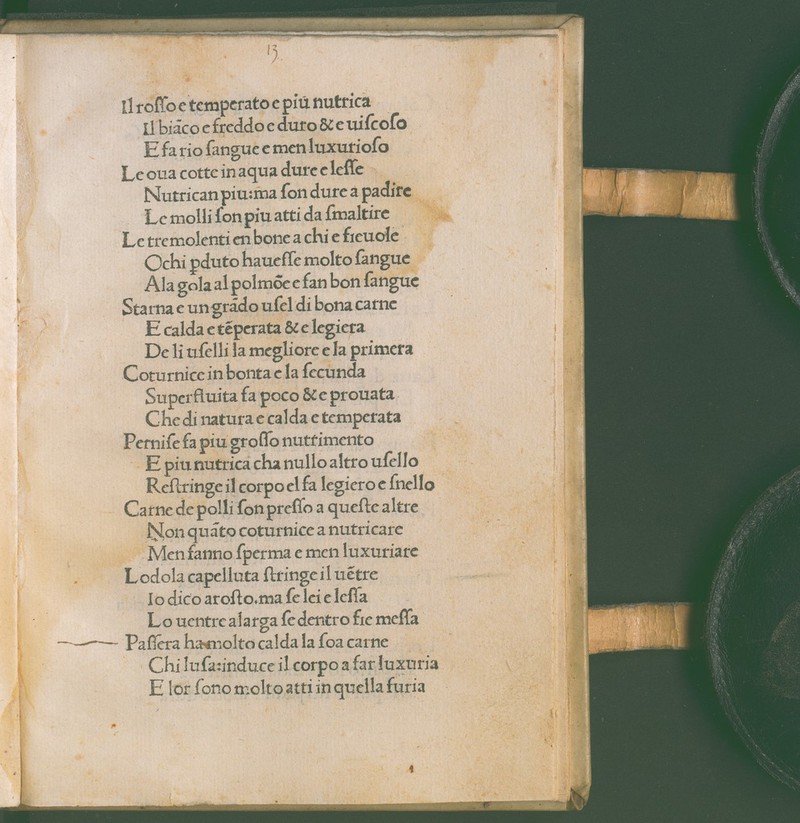 13
Il roſſo e temperato e piu nutrica
Il biāco e freddo e duro & e uiſcoſo
E fa rio ſangue e men luxurioſo
Le oua cotte in aqua dure e leſſe
Nutrican piu:ma ſon dure a padire
Le molli ſon piu atti da ſmaltire
Le tremolenti en bone a chi e fieuole
Ochi ꝑduto haueſſe molto ſangue
Ala gola al polmōe e fan bon ſangue
Starna e un grādo uſel di bona carne
E calda e tēperata & e legiera
De li uſelli la megliore e la primera
Coturnice in bonta e la ſecunda
Superfluita fa poco & e prouata
Che di natura e calda e temperata
Perniſe fa piu groſſo nutrimento
E piu nutrica cha nullo altro uſello
Reſtringe il corpo el fa legiero e ſnello
Carne de polli ſon preſſo a queſte altre
Non quāto coturnice a nutricare
Men fanno ſperma e men luxuriare
Lodola capelluta ſtringe il uētre
Io dico aroſto.ma ſe lei e leſſa
Lo uentre alarga ſe dentro fie meſſa
Paſſera ha molto calda la ſoa carne
Chi luſa:induce il corpo a far luxuria
E lor ſono molto atti in quella furia